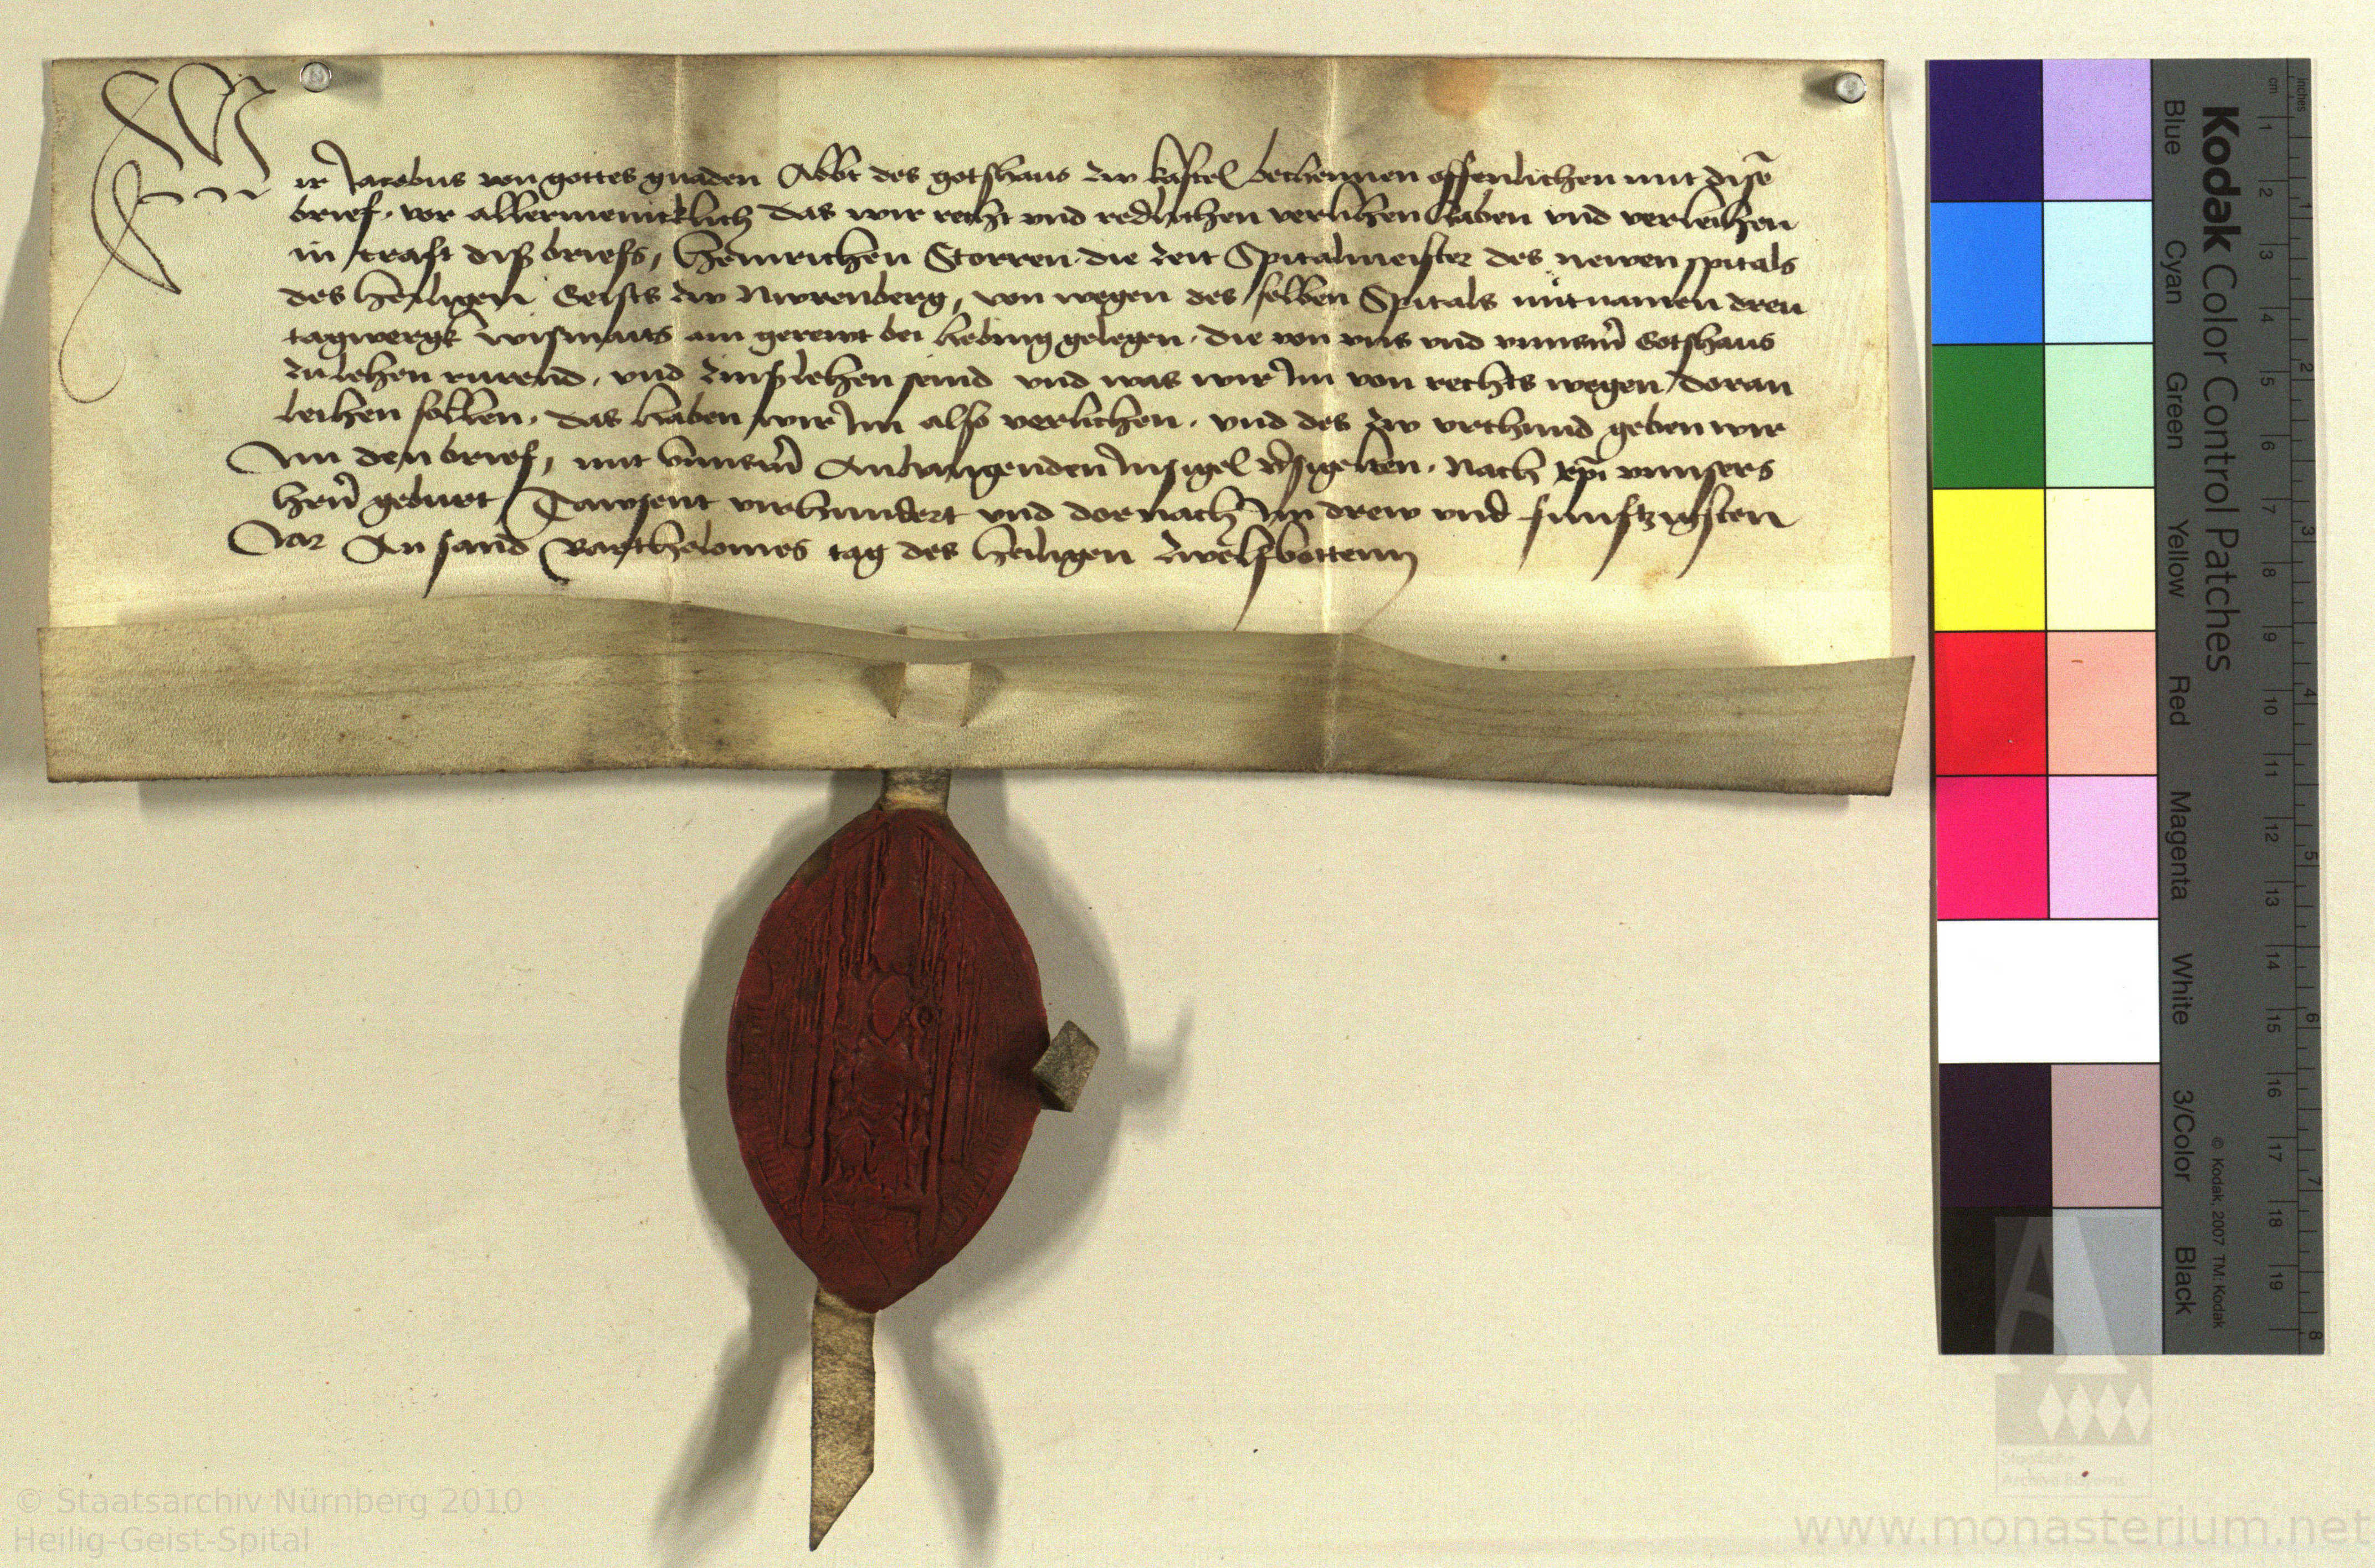 Wir Jacobus von gottes gnaden Abbt des gotshaus zw kastel bechennen offenlichen mit disē
brief, vor allermenicklich das wir recht vnd redlichen verlihen haben vnd verleihen
in craft diß briefs, Heinrichen Storren die zeit Spitalmeister des newen spitals
des heyligen Geists zw Nwrenberg, von wegen des selben Spitals mitnamen dreu
tagwergk wismats am gerewt bei gelegen, die von vns vnd vnnserm̄ Gotshaus
zu lehen rurend, vnd zinßlehen seind vnd was wir Im von rechts wegen doran
leihen sollen, das haben wir Im also verlichen, vnd des zw vrchund geben wir
Im den brief, mit vnnserm̄ Anhangenden Insigel v̄sigelten, Nach xp̄i vnnsers
hern̄ geburt Tawsent virhundert vnd dornach Im drew vnd funftzigsten
Jar An sand Bartholomes tag des heiligen zwelfbottenn
Kodak Color Control Patches
Blue Cyan Green Yellow Red Magenta White 3/Color Black
© Kodak, 2007 TM: Kodak
cm 1 2 3 4 5 6 7 8 9 10 11 12 13 14 15 16 17 18 19
inches 1 2 3 4 5 6 7 8
© Staatsarchiv Nürnberg 2010
Heilig-Geist-Spital
Staatliche
Archive Bayerns
www.monasterium.net